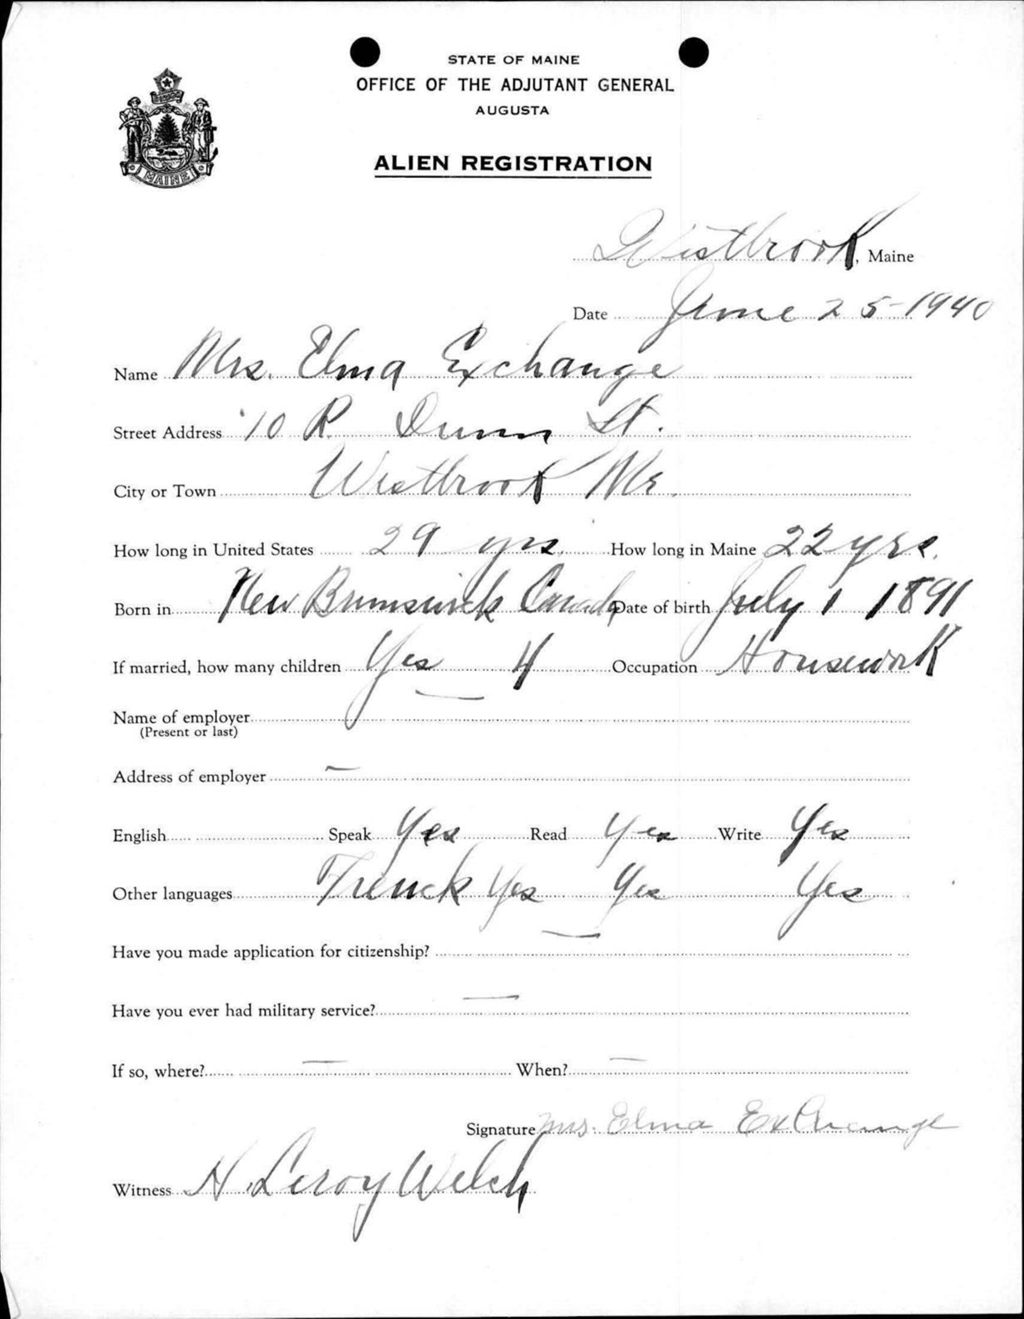 STATE OF MAINE
OFFICE OF THE ADJUTANT GENERAL
AUGUSTA
ALIEN REGISTRATION
MAINE
Westbrook, Maine
Date June 25-1940
Name Mrs. Elma Exchange
Street Address 10 R. Dunn St.
City or Town Westbrook Me.
How long in United States 29 yrs. How long in Maine 22 yrs.
Born in New Brunswick Canada Date of birth July 1 1891
If married, how many children Yes 4 Occupation Housework
Name of employer —
(Present or last)
Address of employer —
English Speak Yes Read Yes Write Yes
Other languages French Yes Yes Yes
Have you made application for citizenship? —
Have you ever had military service? —
If so, where? — When? —
Signature Mrs. Elma Exchange
Witness H. Leroy Welch